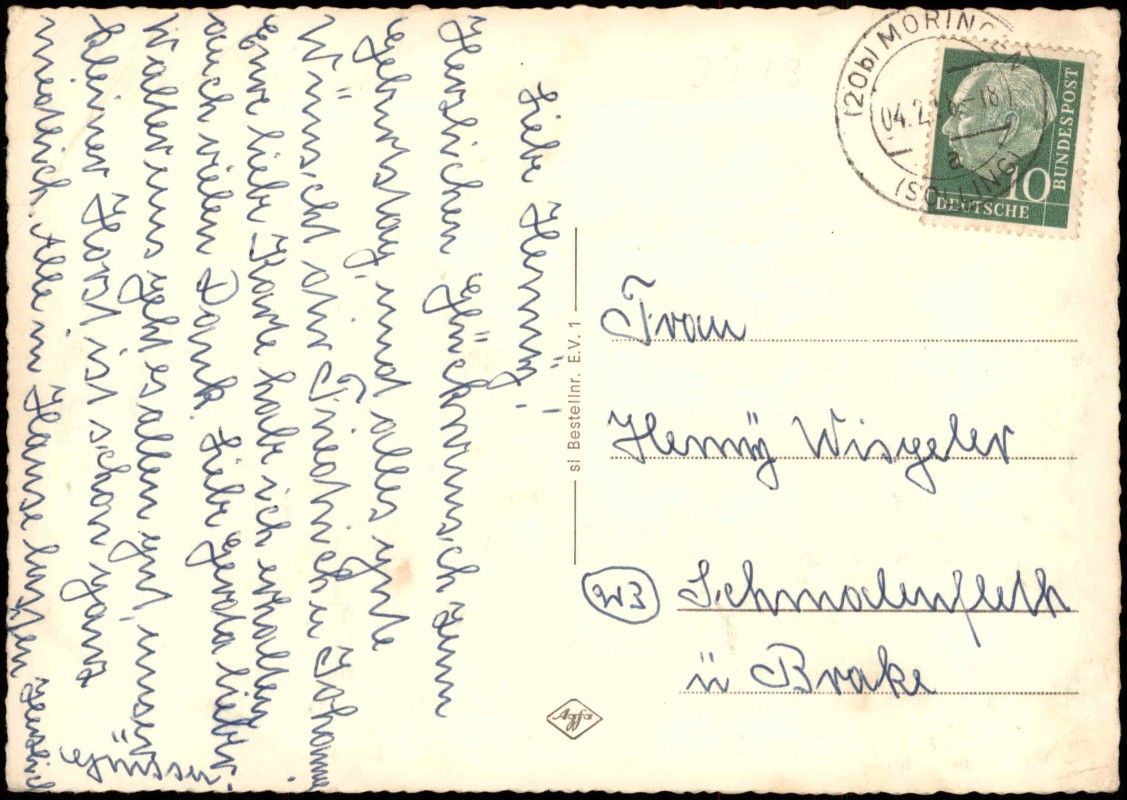 Liebe Henny!
Herzlichen Glückwunsch zum
Geburtstag, und alles gute
Wünscht dir Friedrich u Johanne
Eure liebe Karte habe ich erhalten
auch vielen Dank. Liebe Gerda lieber
Walter uns geht es allen gut, unser
kleiner Horst ist schon ganz
niedlich. Alle im Hause lassen herzlich
grüssen.
si Bestellnr. E.V. 1
Agfa
(20b) MORINGEN
04.2.58-18
a
(SOLLING)
DEUTSCHE
BUNDESPOST
10
Frau
Henny Wisgeler
23 Schmalenfleth
ü Brake